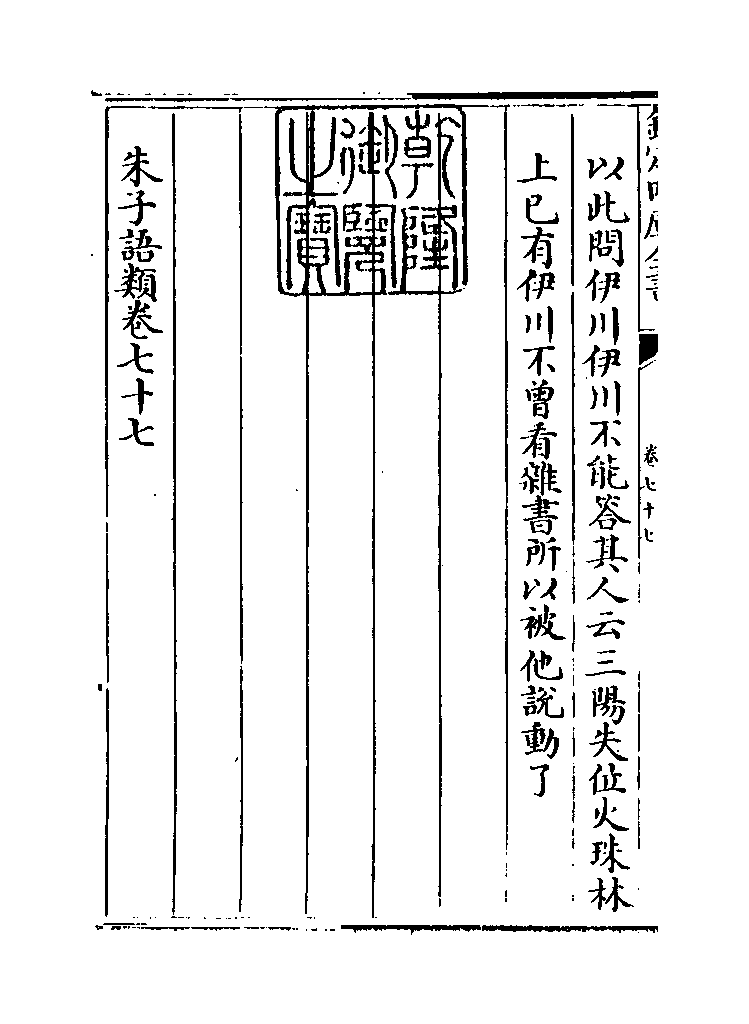 欽定四庫全書
卷七十七
以此問伊川伊川不能答其人云三陽失位火珠林
上已有伊川不曾看雜書所以被他說動了
乾隆
御覽
之寶
朱子語類卷七十七